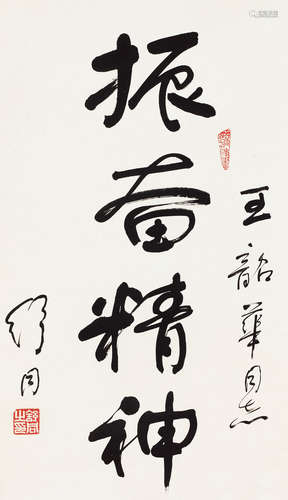 振奋精神
王韶华同志
舒同
舒同之印